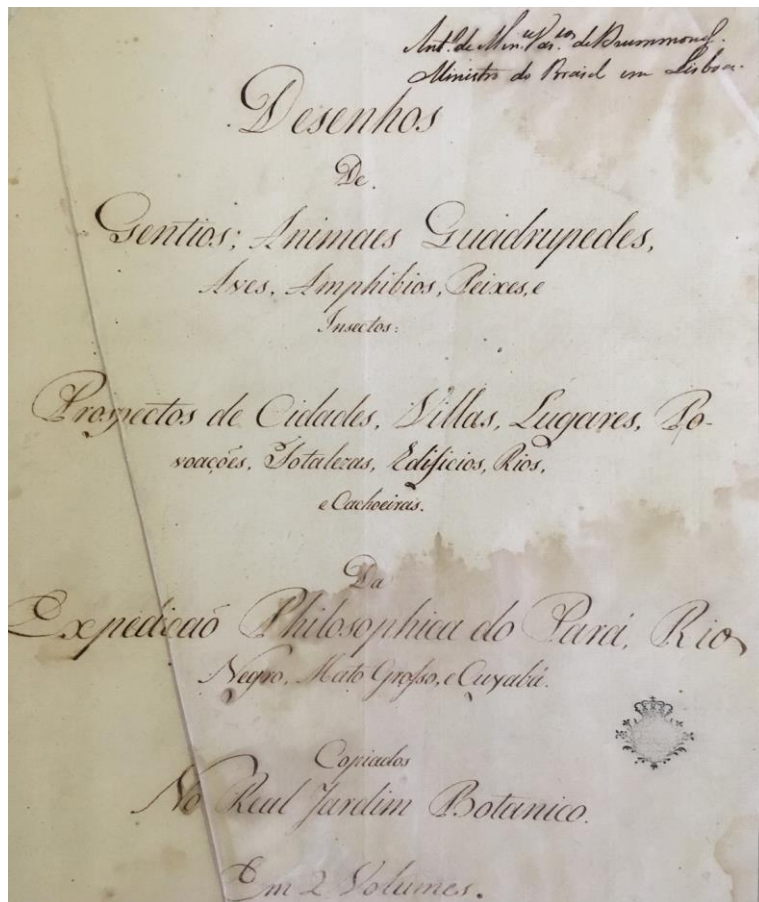 Ant.º de Men.es Vas.os de Drummond.
Ministro do Brasil em Lisboa.
Desenhos
De.
Gentios; Animaes Quadrupedes,
Aves, Amphibios, Peixes, e
Insectos:
Prospectos de Cidades, Villas, Lugares, Po-
voações, Fotalezas, Edificios, Rios,
e Cachoeiras.
Da
Expedicaõ Philosophica do Pará, Rio
Negro, Mato Grosso, e Cuyabá.
Copiados
No Real Jardim Botanico.
Em 2 Volumes.